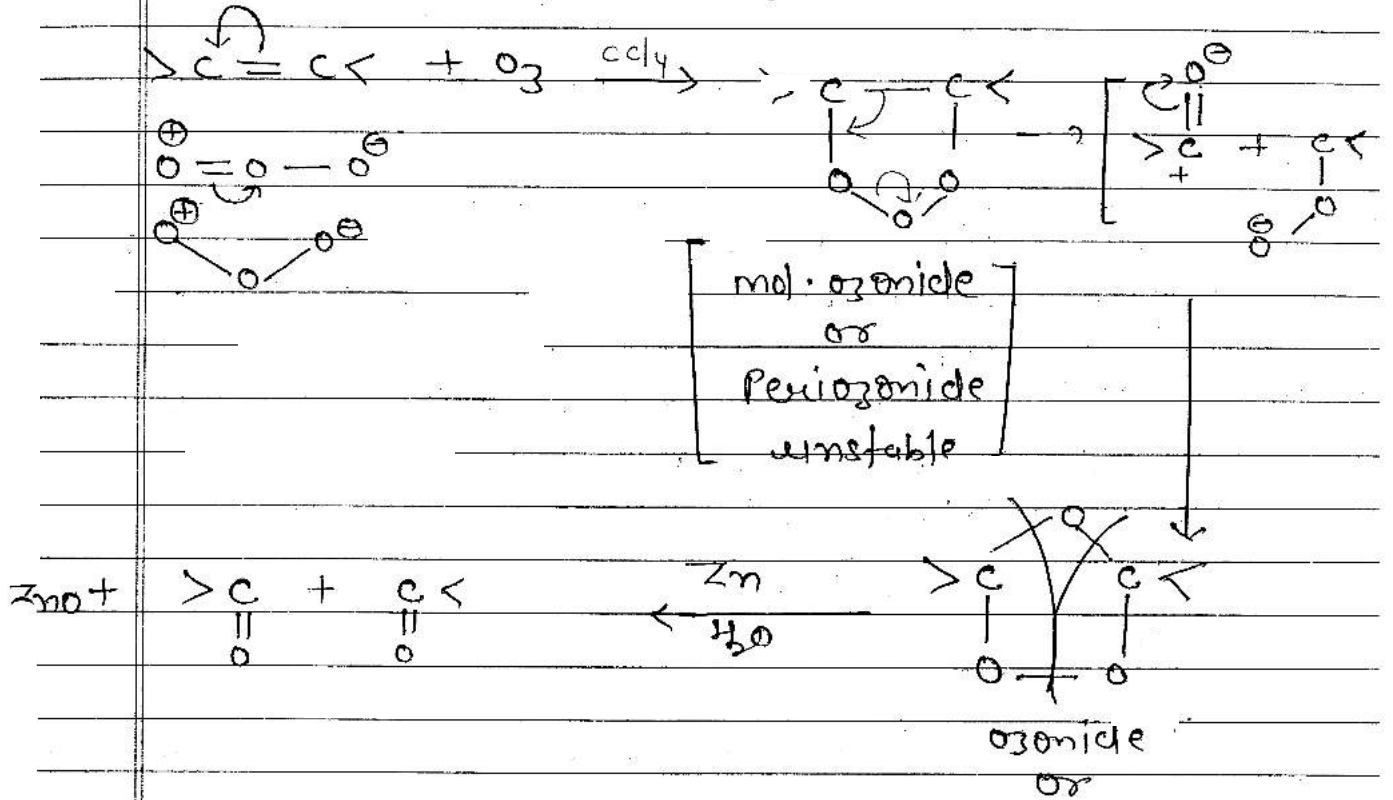 >C = C< + O3 CCl4 → >C — C< → [ >C + C<
⊕ O = O — O ⊖
O O
O
⊕ O O ⊖
O
O ⊖
+
O
⊖ O
mol. ozonide
or
Periozonide
unstable
O
ZnO + >C + C< Zn >C C<
O O H2O O — O
ozonide
or